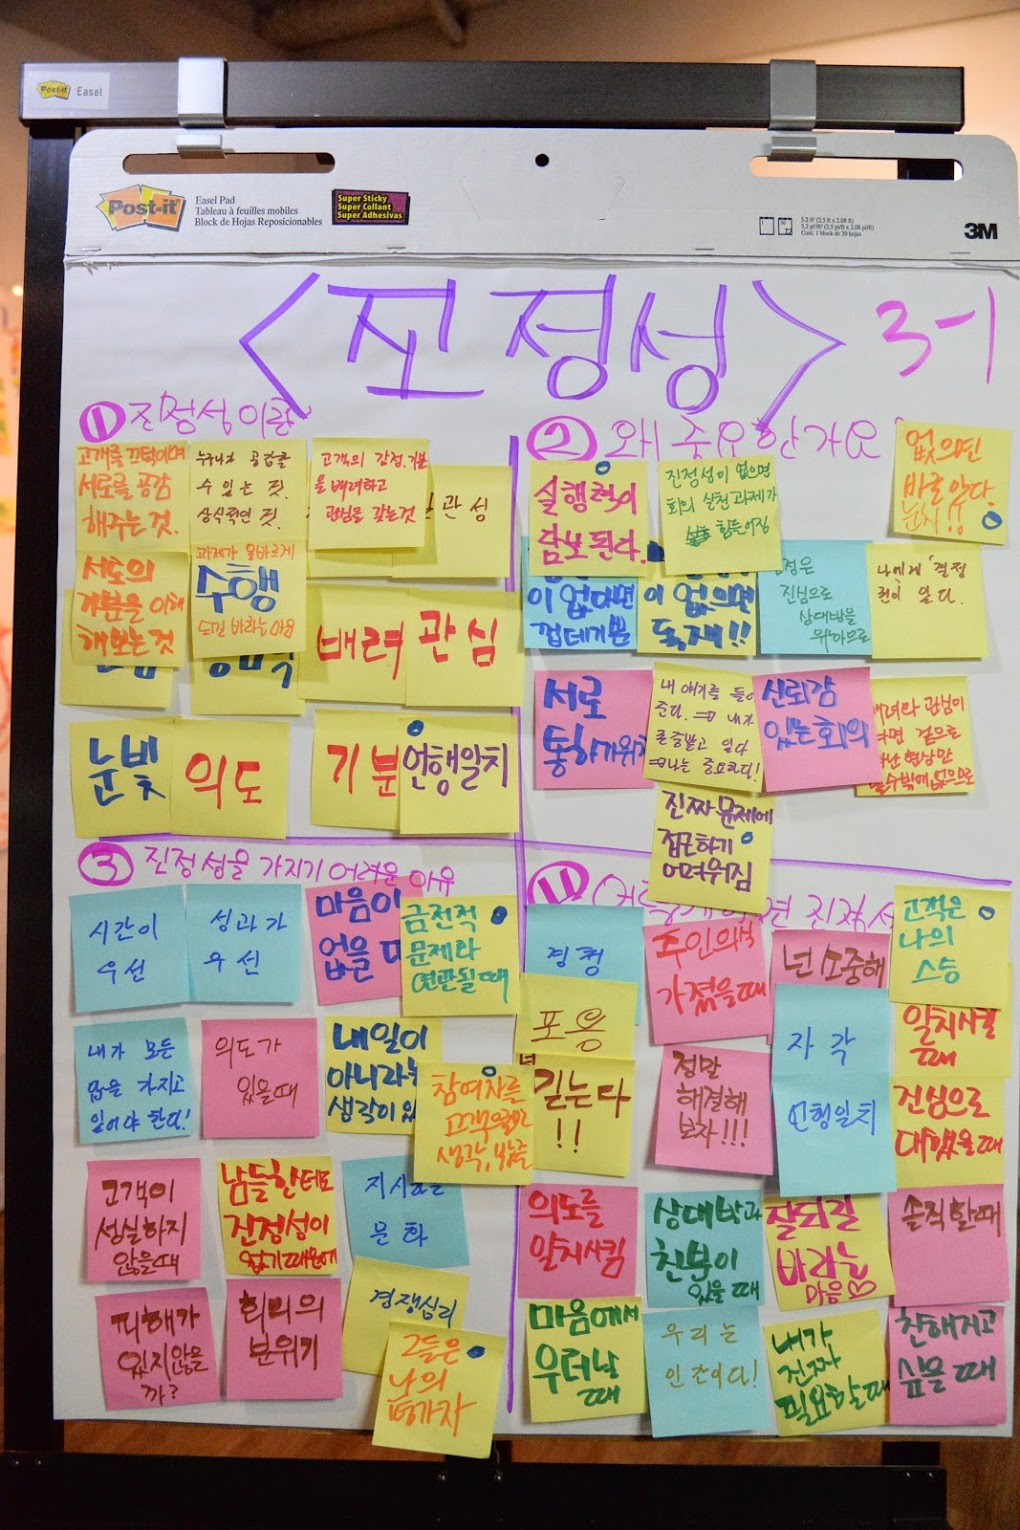 Post-it Easel
Post-it
Easel Pad
Tableau à feuilles mobiles
Block de Hojas Reposicionables
Super Sticky
Super Collant
Super Adhesivas
3M
<진정성>
3-1
① 진정성이란
고객를 끄덕이며
서로를 공감
해주는 것.
누구나 공감할
수 있는 것.
상식적인 것.
고객의 감정, 기분
을 배려하고
관심을 갖는것
관심
서로의
기분을 이해
해보는것
과제가 올바르게
수행
되길 바라는 마음
배려
관심
눈빛
의도
기분
언행일치
② 왜 중요한가요
실행력이
담보된다.
진정성이 없으면
회의 실천과제가
힘들어짐
없으면
바로 안다.
눈치!!
이 없다면
껍데기뿐
이 없으면
독재!!
진심으로
상대방을
위하므로
나에게 결정
권이 있다.
서로
통하기위해
내 얘기를 들어
준다. ⇒ 내가
존중받고 있다
⇒나는 중요하다!
신뢰감
있는 회의
배려와 관심이
겉으로
현상만
볼수밖에 없으므로
진짜 문제에
접근하기
어려워짐
③ 진정성을 가지기 어려운 이유
시간이
우선
성과가
우선
마음이
없을 때
금전적
문제와
연관될때
내가 모든
답을 가지고
있어야 한다!
의도가
있을때
내일이
아니라는
생각이 있
참여자를
고객으로
생각,
고객이
성실하지
않을때
남들한테도
진정성이
없기때문에
지시하는
문화
피해가
있지않을
까?
회의의
분위기
경쟁심리
그들은
나의
평가자
4
경청
주인의식
가졌을때
넌 소중해
고객은
나의
스승
포용
자각
일치시킬
때
믿는다
!!
정말
해결해
보자!!!
언행일치
진심으로
대했을때
의도를
일치시킴
상대방과
친분이
있을 때
잘되길
바라는
마음♡
솔직할때
마음에서
우러날
때
우리는
인간이다!
내가
진짜
필요할때
친해지고
싶을 때